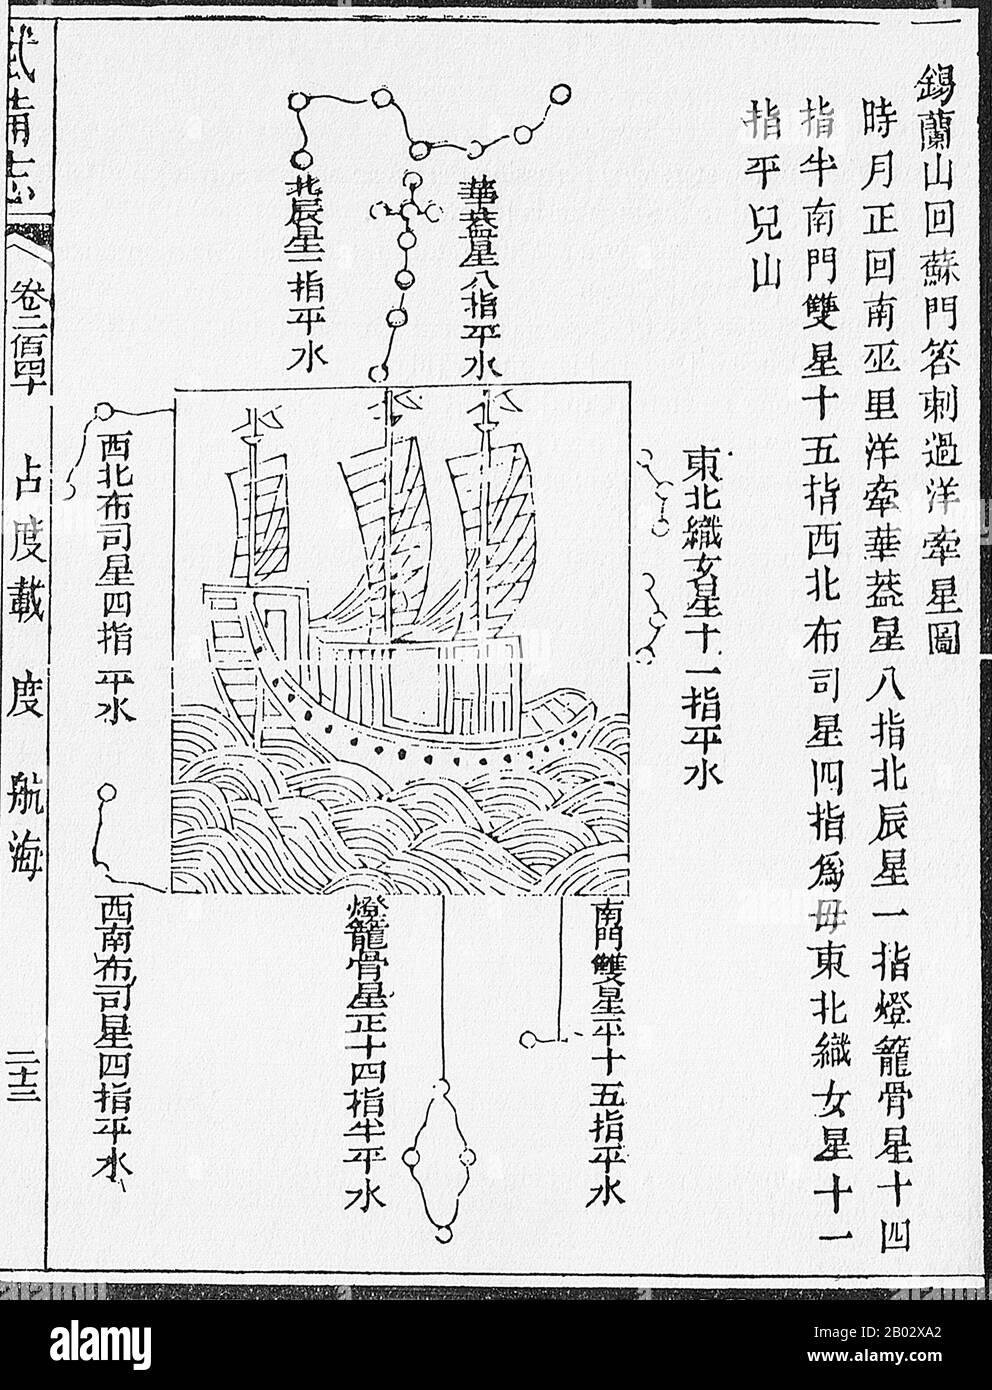 錫蘭山回蘇門答刺過洋牽星圖
時月正回南巫里洋牽華蓋星八指北辰星一指燈籠骨星十四
指半南門雙星十五指西北布司星四指為母東北織女星十一
指平兒山
華蓋星八指平水
北辰星一指平水
東北織女星十一指平水
西北布司星四指平水
南門雙星平十五指平水
燈籠骨星正十四指半平水
西南布司星四指平水
武備志
卷二百四十
占度載
度
航海
二十三
alamy
Image ID: B02XA2
www.alamy.com